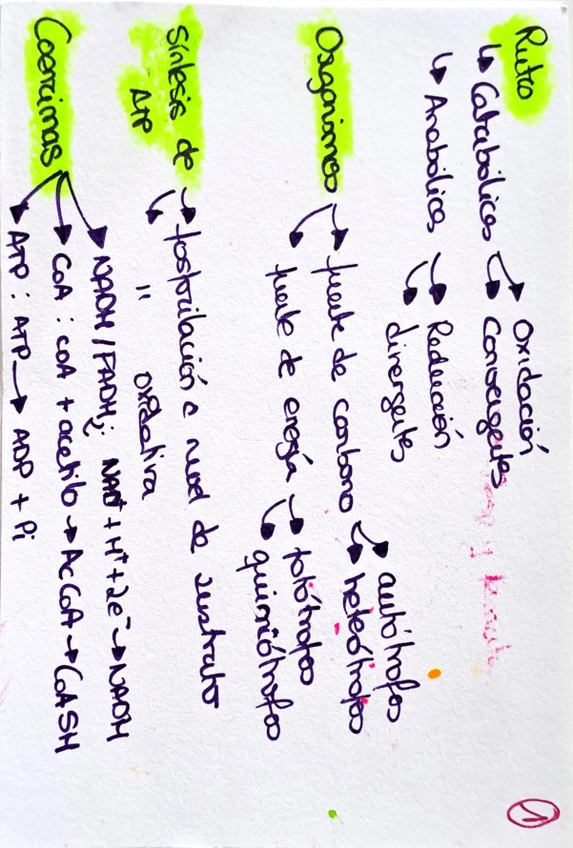 Ruta
↳ Catabólicas → Oxidación
→ Convergentes
↳ Anabólicas → Reducción
→ divergentes
Organismos → fuente de carbono → autótrofos
→ heterótrofos
→ fuente de energía → fotótrofos
→ quimiótrofos
Síntesis de ATP → fosforilación a nivel de sustrato
→ " oxidativa
Coenzimas → NADH / FADH₂: NAD⁺ + H⁺ + 2e⁻ → NADH
→ CoA : CoA + acetilo → AcCoA → CoASH
→ ATP : ATP → ADP + Pi
1